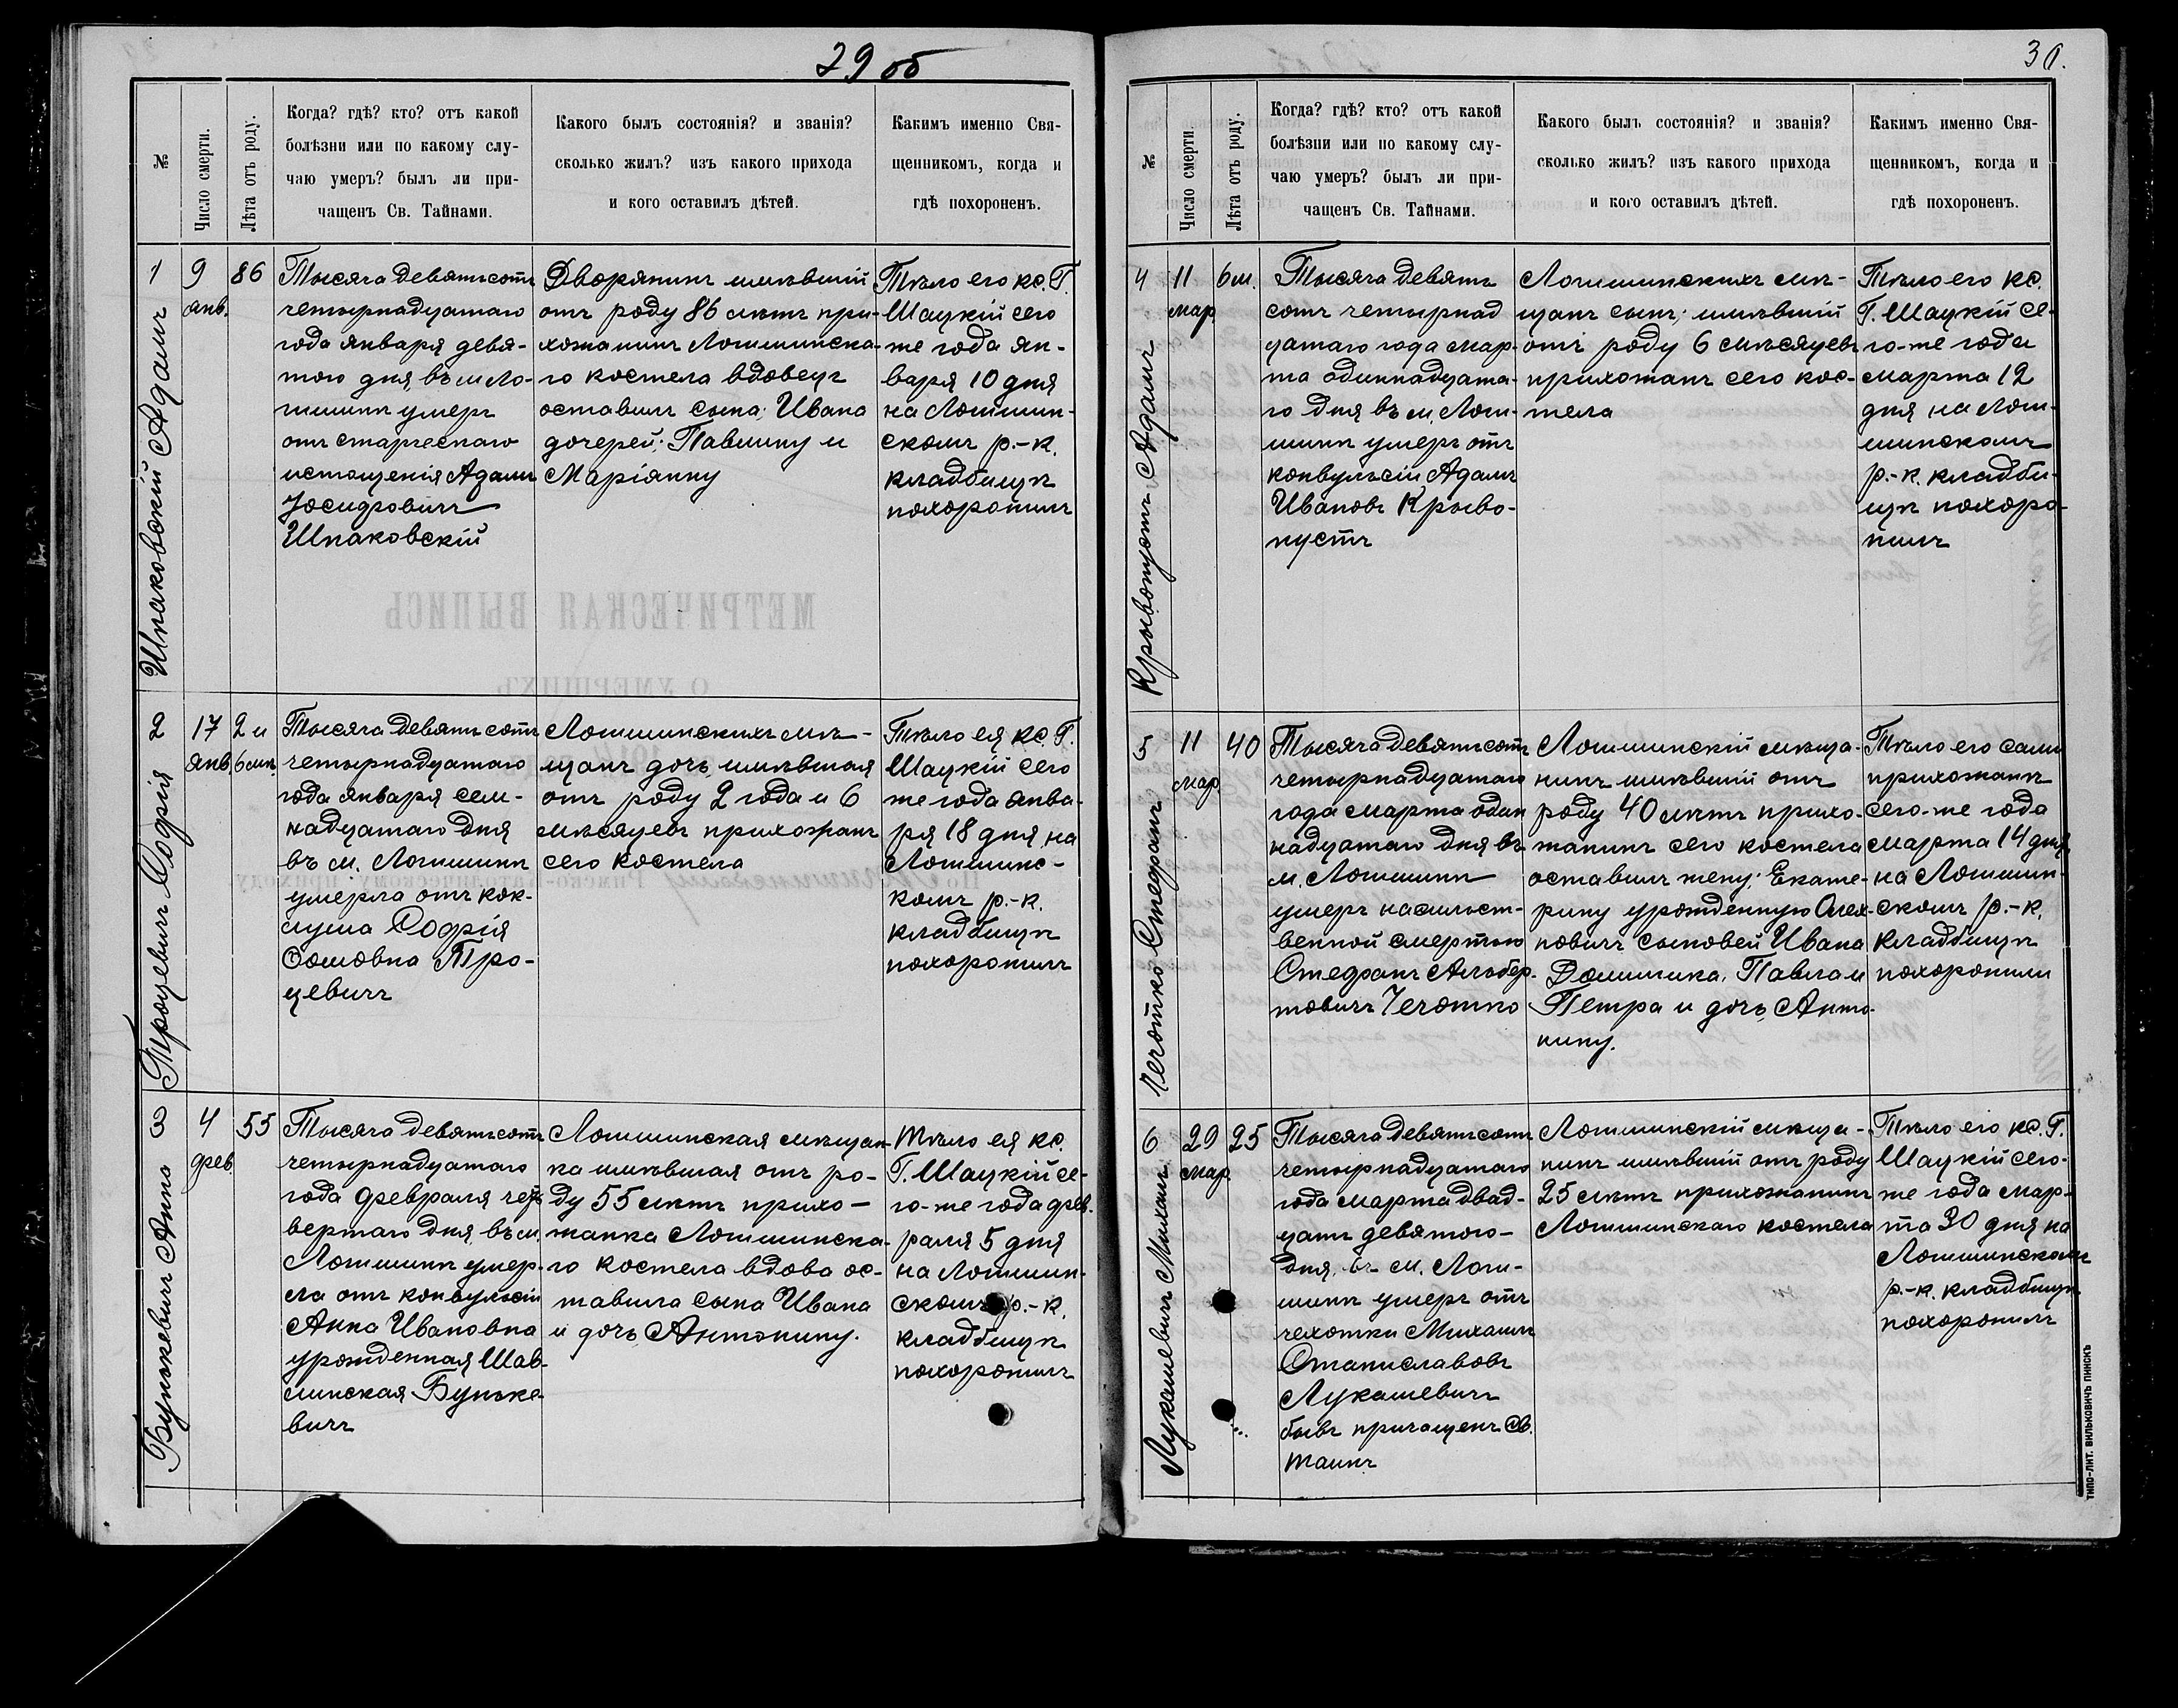 29 об
№
Число смерти.
Лѣта отъ роду.
Когда? гдѣ? кто? отъ какой
болѣзни или по какому слу-
чаю умеръ? былъ ли при-
чащенъ Св. Тайнами.
Какого былъ состоянія? и званія?
сколько жилъ? изъ какого прихода
и кого оставилъ дѣтей.
Какимъ именно Свя-
щенникомъ, когда и
гдѣ похороненъ.
1
Шпаковскій Адамъ
9
янв.
86
Тысяча девятьсотъ
четырнадцатаго
года января девя-
того дня, въ м. Ло-
гишинѣ умеръ
отъ старческаго
истощенія Адамъ
Іосифовичъ
Шпаковскій
Дворянинъ имѣвшій
отъ роду 86 лѣтъ при-
хожанинъ Логишинска-
го костела вдовецъ
оставилъ сына: Ивана
дочерей: Павлину и
Маріянну
Тѣло его кс. Г.
Шауцкій сего
же года ян-
варя 10 дня
на Логишин-
скомъ р.-к.
кладбищѣ
похоронилъ
2
Троцевичъ Софія
17
янв.
2 и
6 мѣ.
Тысяча девятьсотъ
четырнадцатаго
года января сем-
надцатаго дня
въ м. Логишинѣ
умерла отъ кок-
люша Софія
Ѳомовна Тро-
цевичъ
Логишинскихъ мѣ-
щанъ дочь, имѣвшая
отъ роду 2 года и 6
мѣсяцевъ прихожанъ
сего костела
Тѣло ея кс. Г.
Шауцкій сего
же года янва-
ря 18 дня на
Логишинс-
комъ р.-к.
кладбищѣ
похоронилъ
3
Бунькевичъ Анна
4
фев.
55
Тысяча девятьсотъ
четырнадцатаго
года февраля чет-
вертаго дня, въ м.
Логишинѣ умер-
ла отъ конвульсіи
Анна Ивановна
урожденная Шав-
линская Буньке-
вичъ
Логишинская мѣщан-
ка имѣвшая отъ ро-
ду 55 лѣтъ прихо-
жанка Логишинска-
го костела вдова ос-
тавила сына Ивана
и дочь Антонину.
Тѣло ея кс.
Г. Шауцкій се-
го-же года фев-
раля 5 дня
на Логишин-
скомъ р.-к.
кладбищѣ
похоронилъ
30.
№
Число смерти
Лѣта отъ роду.
Когда? гдѣ? кто? отъ какой
болѣзни или по какому слу-
чаю умеръ? былъ ли при-
чащенъ Св. Тайнами.
Какого былъ состоянія? и званія?
сколько жилъ? изъ какого прихода
и кого оставилъ дѣтей.
Какимъ именно Свя-
щенникомъ, когда и
гдѣ похороненъ.
4
Крывопустъ Адамъ
11
мар.
6 м.
Тысяча девять
сотъ четырнад
цатаго года мар-
та одиннадцата-
го дня въ м. Логи-
шинѣ умеръ отъ
конвульсіи Адамъ
Ивановъ Крыво-
пустъ
Логишинскихъ мѣ-
щанъ сынъ; имѣвшій
отъ роду 6 мѣсяцевъ
прихожанъ сего кос-
тела
Тѣло его кс.
Г. Шауцкій се-
го-же года
марта 12
дня на Логи-
шинскомъ
р.-к. кладби-
щѣ похоро-
нилъ
5
Чечотко Стефанъ
11
мар
40
Тысяча девятьсотъ
четырнадцатаго
года марта один
надцатаго дня въ
м. Логишинѣ
умеръ насильст-
венной смертью
Стефанъ Альбер-
товичъ Чечотко
Логишинскій мѣща-
нинъ имѣвшій отъ
роду 40 лѣтъ прихо-
жанинъ сего костела
оставилъ жену: Екате-
рину урожденную Олех-
новичъ сыновей Ивана
Доминика, Павла и
Петра и дочь, Анто-
нину.
Тѣло его сами
прихожанѣ
сего-же года
марта 14 дня
на Логишин-
скомъ р.-к.
кладбищѣ
похоронили
6
Лукашевичъ Михаилъ
29
мар.
25
Тысяча девятьсотъ
четырнадцатаго
года марта двад-
цать девятого-
дня, въ м. Логи-
шинѣ умеръ отъ
чехотки Михаилъ
Станиславовъ
Лукашевичъ
бывъ причащенъ Св.
Таинъ
Логишинскій мѣща-
нинъ имѣвшій отъ роду
25 лѣтъ прихожанинъ
Логишинскаго костела
Тѣло его кс. Г.
Шауцкій сего-
же года мар-
та 30 дня на
Логишинскомъ
р.-к. кладбищѣ
похоронилъ
ТИПО-ЛИТ. ВИЛЬКОВИЧЪ ПИНСКЪ